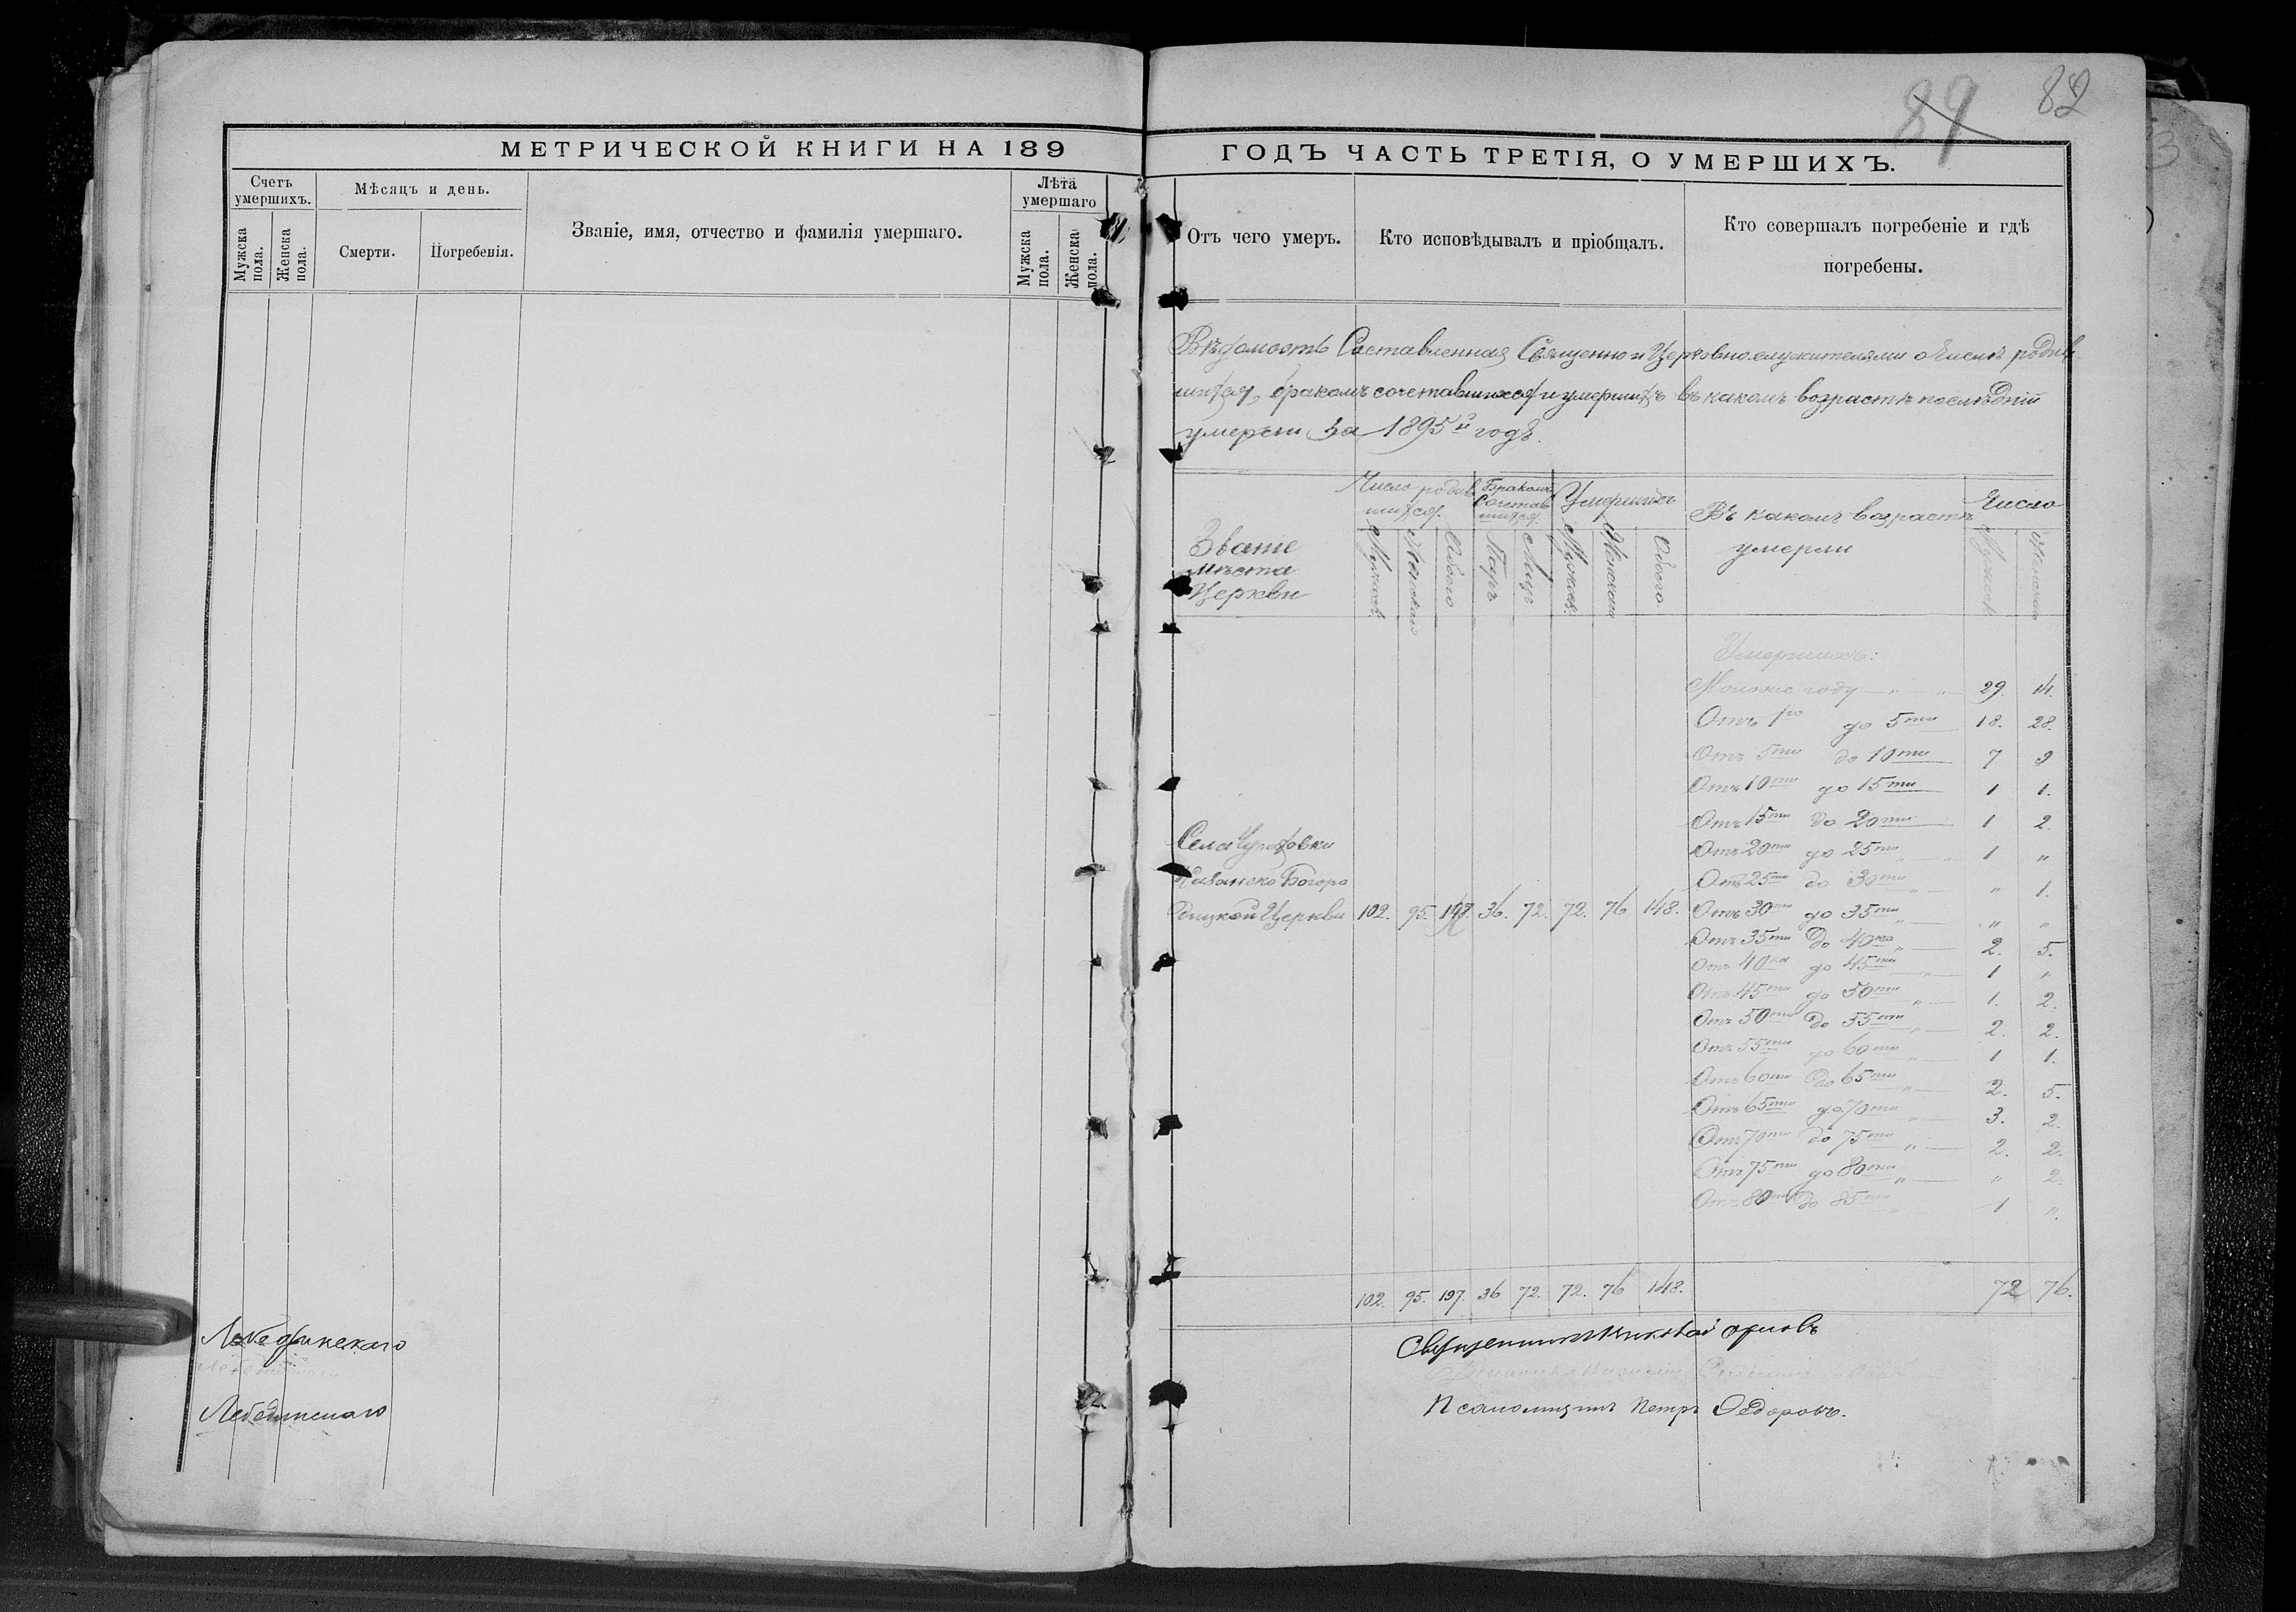 МЕТРИЧЕСКОЙ КНИГИ НА 189
Счетъ умершихъ.
Мѣсяцъ и день.
Званіе, имя, отчество и фамилія умершаго.
Лѣта умершаго
Мужска пола.
Женска пола.
Смерти.
Погребенія.
Мужска пола.
Женска пола.
Лебединскаго
Лебединскаго
89 82
ГОДЪ ЧАСТЬ ТРЕТІЯ, О УМЕРШИХЪ.
Отъ чего умеръ.
Кто исповѣдывалъ и пріобщалъ.
Кто совершалъ погребеніе и гдѣ погребены.
Вѣдомость Составленная Священно и Церковнослужителями о Числѣ родив
шихся, бракомъ сочетавшихся и умершихъ въ какомъ возрастѣ послѣдній
умерли за 1895й годъ.
Званіе мѣста Церкви
Число родив шихся.
Бракомъ Сочетав шихся.
Умершихъ
Въ какомъ возрастѣ умерли
Число
Мужск. Женскаго Обоего Паръ Лицъ Мужск. Женскаго Обоего Мужск. Женскаго
Умершихъ:
Моложе году — " — " 29. 14.
Отъ 1го до 5ти 18. 28.
Отъ 5ти до 10ти 7 9
Отъ 10ти до 15ти 1 1.
Отъ 15ти до 20ти 1 2.
Отъ 20ти до 25ти " 1 "
Отъ 25ти до 30ти " " 1.
Отъ 30ти до 35ти " " "
Отъ 35ти до 40ка " 2. 5.
Отъ 40ка до 45ти " 1 "
Отъ 45ти до 50ти " 1. 2.
Отъ 50ти до 55ти " 2. 2.
Отъ 55ти до 60ти " 1 1.
Отъ 60ти до 65ти " 2. 5.
Отъ 65ти до 70ти " 3. 2.
Отъ 70ти до 75ти " 2. 2.
Отъ 75ти до 80ти " " 2.
Отъ 80ти до 85ти " 1 ".
Села
Казанско Богоро
дицкой Церкви 102. 95. 36. 72. 72. 76 148.
102. 95. 197. 36 72. 72. 76 148. 72 76.
Священникъ Николай Орловъ
Псаломщикъ Петръ Ѳедоровъ.